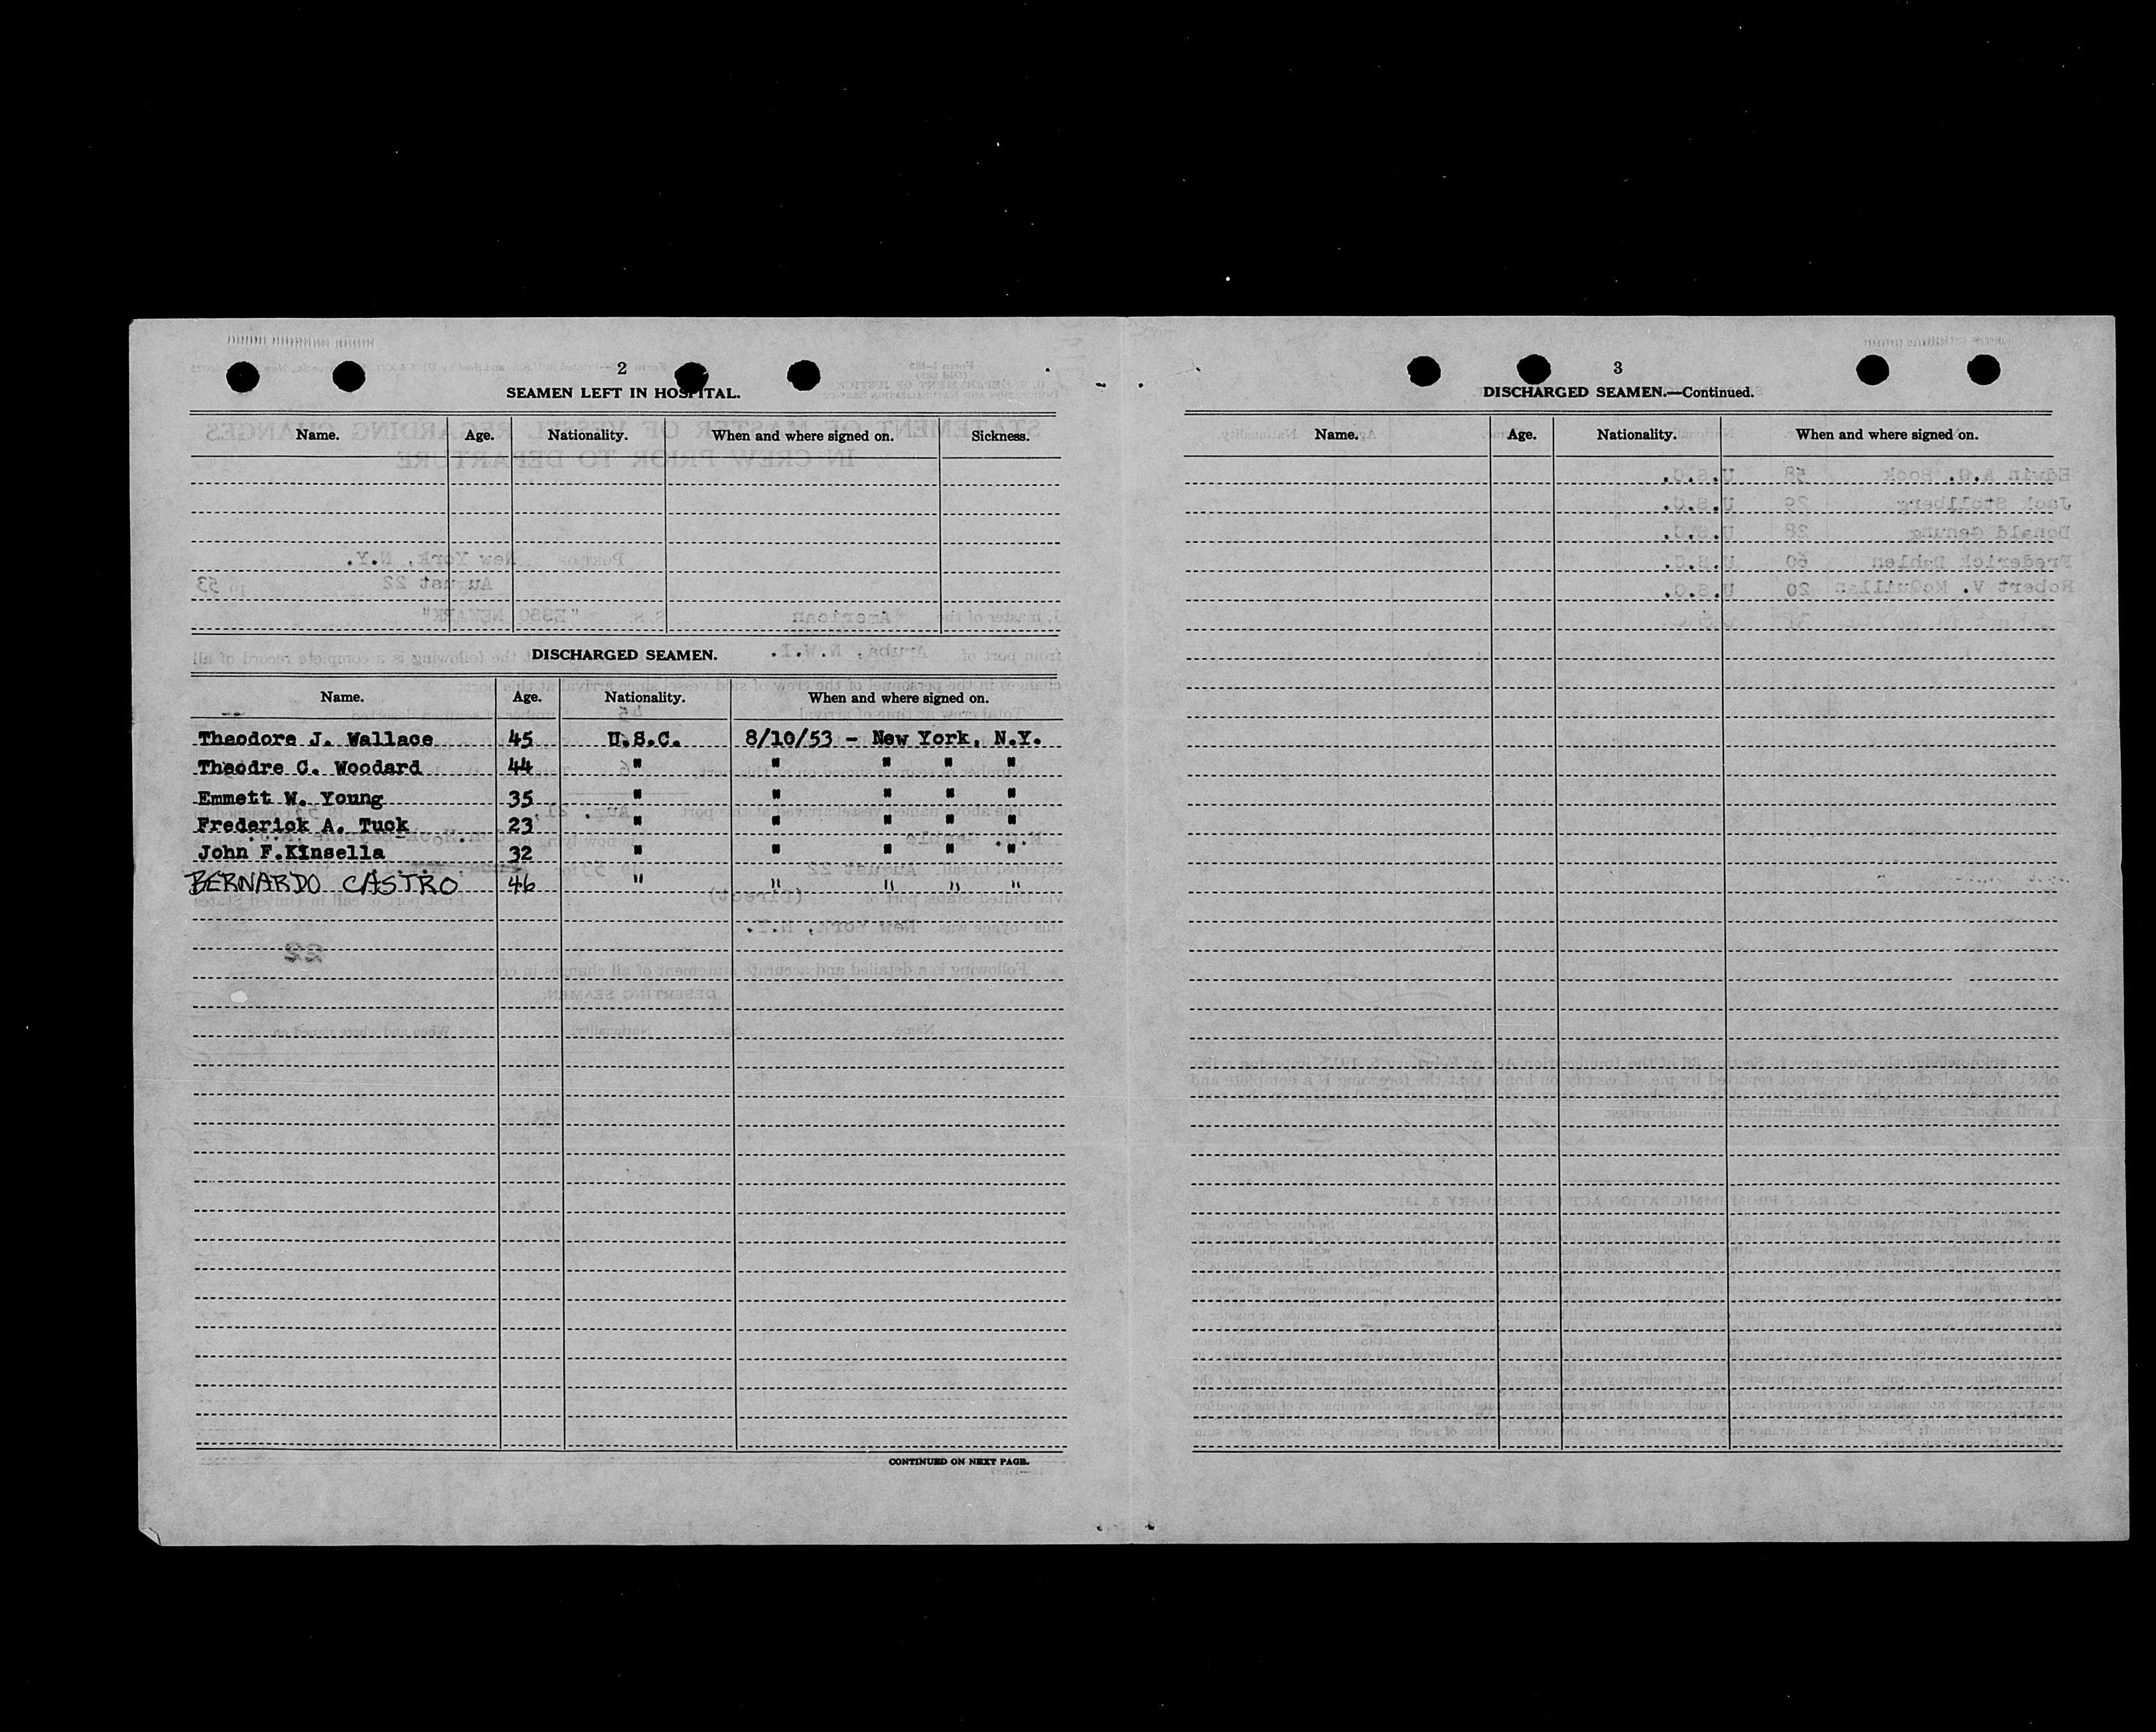 2
SEAMEN LEFT IN HOSPITAL.
Name. Age. Nationality. When and where signed on. Sickness.
DISCHARGED SEAMEN.
Name. Age. Nationality. When and where signed on.
Theodore J. Wallace 45 U.S.C. 8/10/53 - New York, N.Y.
Theodre C. Woodard 44 " " " " "
Emmett W. Young 35 " " " " "
Frederick A. Tuck 23 " " " " "
John F.Kinsella 32 " " " " "
BERNARDO CASTRO 46 " " " " "
CONTINUED ON NEXT PAGE.
3
DISCHARGED SEAMEN.—Continued.
Name. Age. Nationality. When and where signed on.